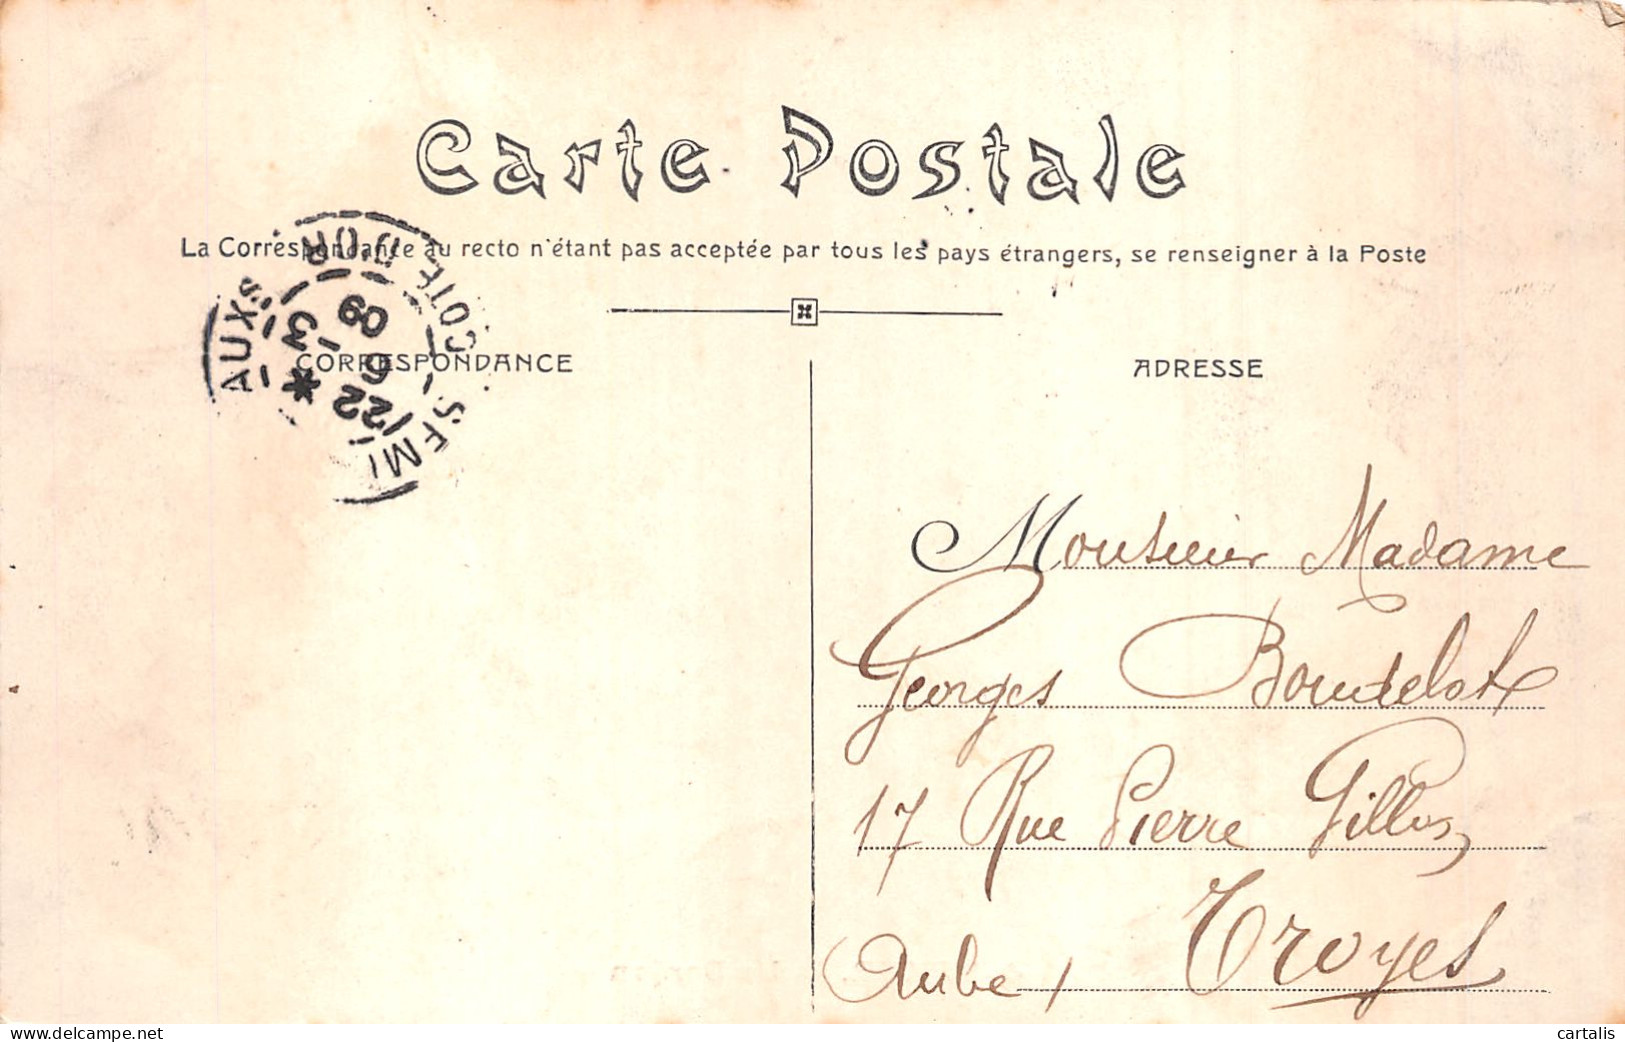 Carte Postale
La Correspondance au recto n'étant pas acceptée par tous les pays étrangers, se renseigner à la Poste
CORRESPONDANCE
ADRESSE
SEMUR AUXS
COTE-D'OR
3 * 
22 6
09
Monsieur Madame
Georges Bourdelot
17 Rue Pierre Gillon
(Aube) Troyes
cartalis